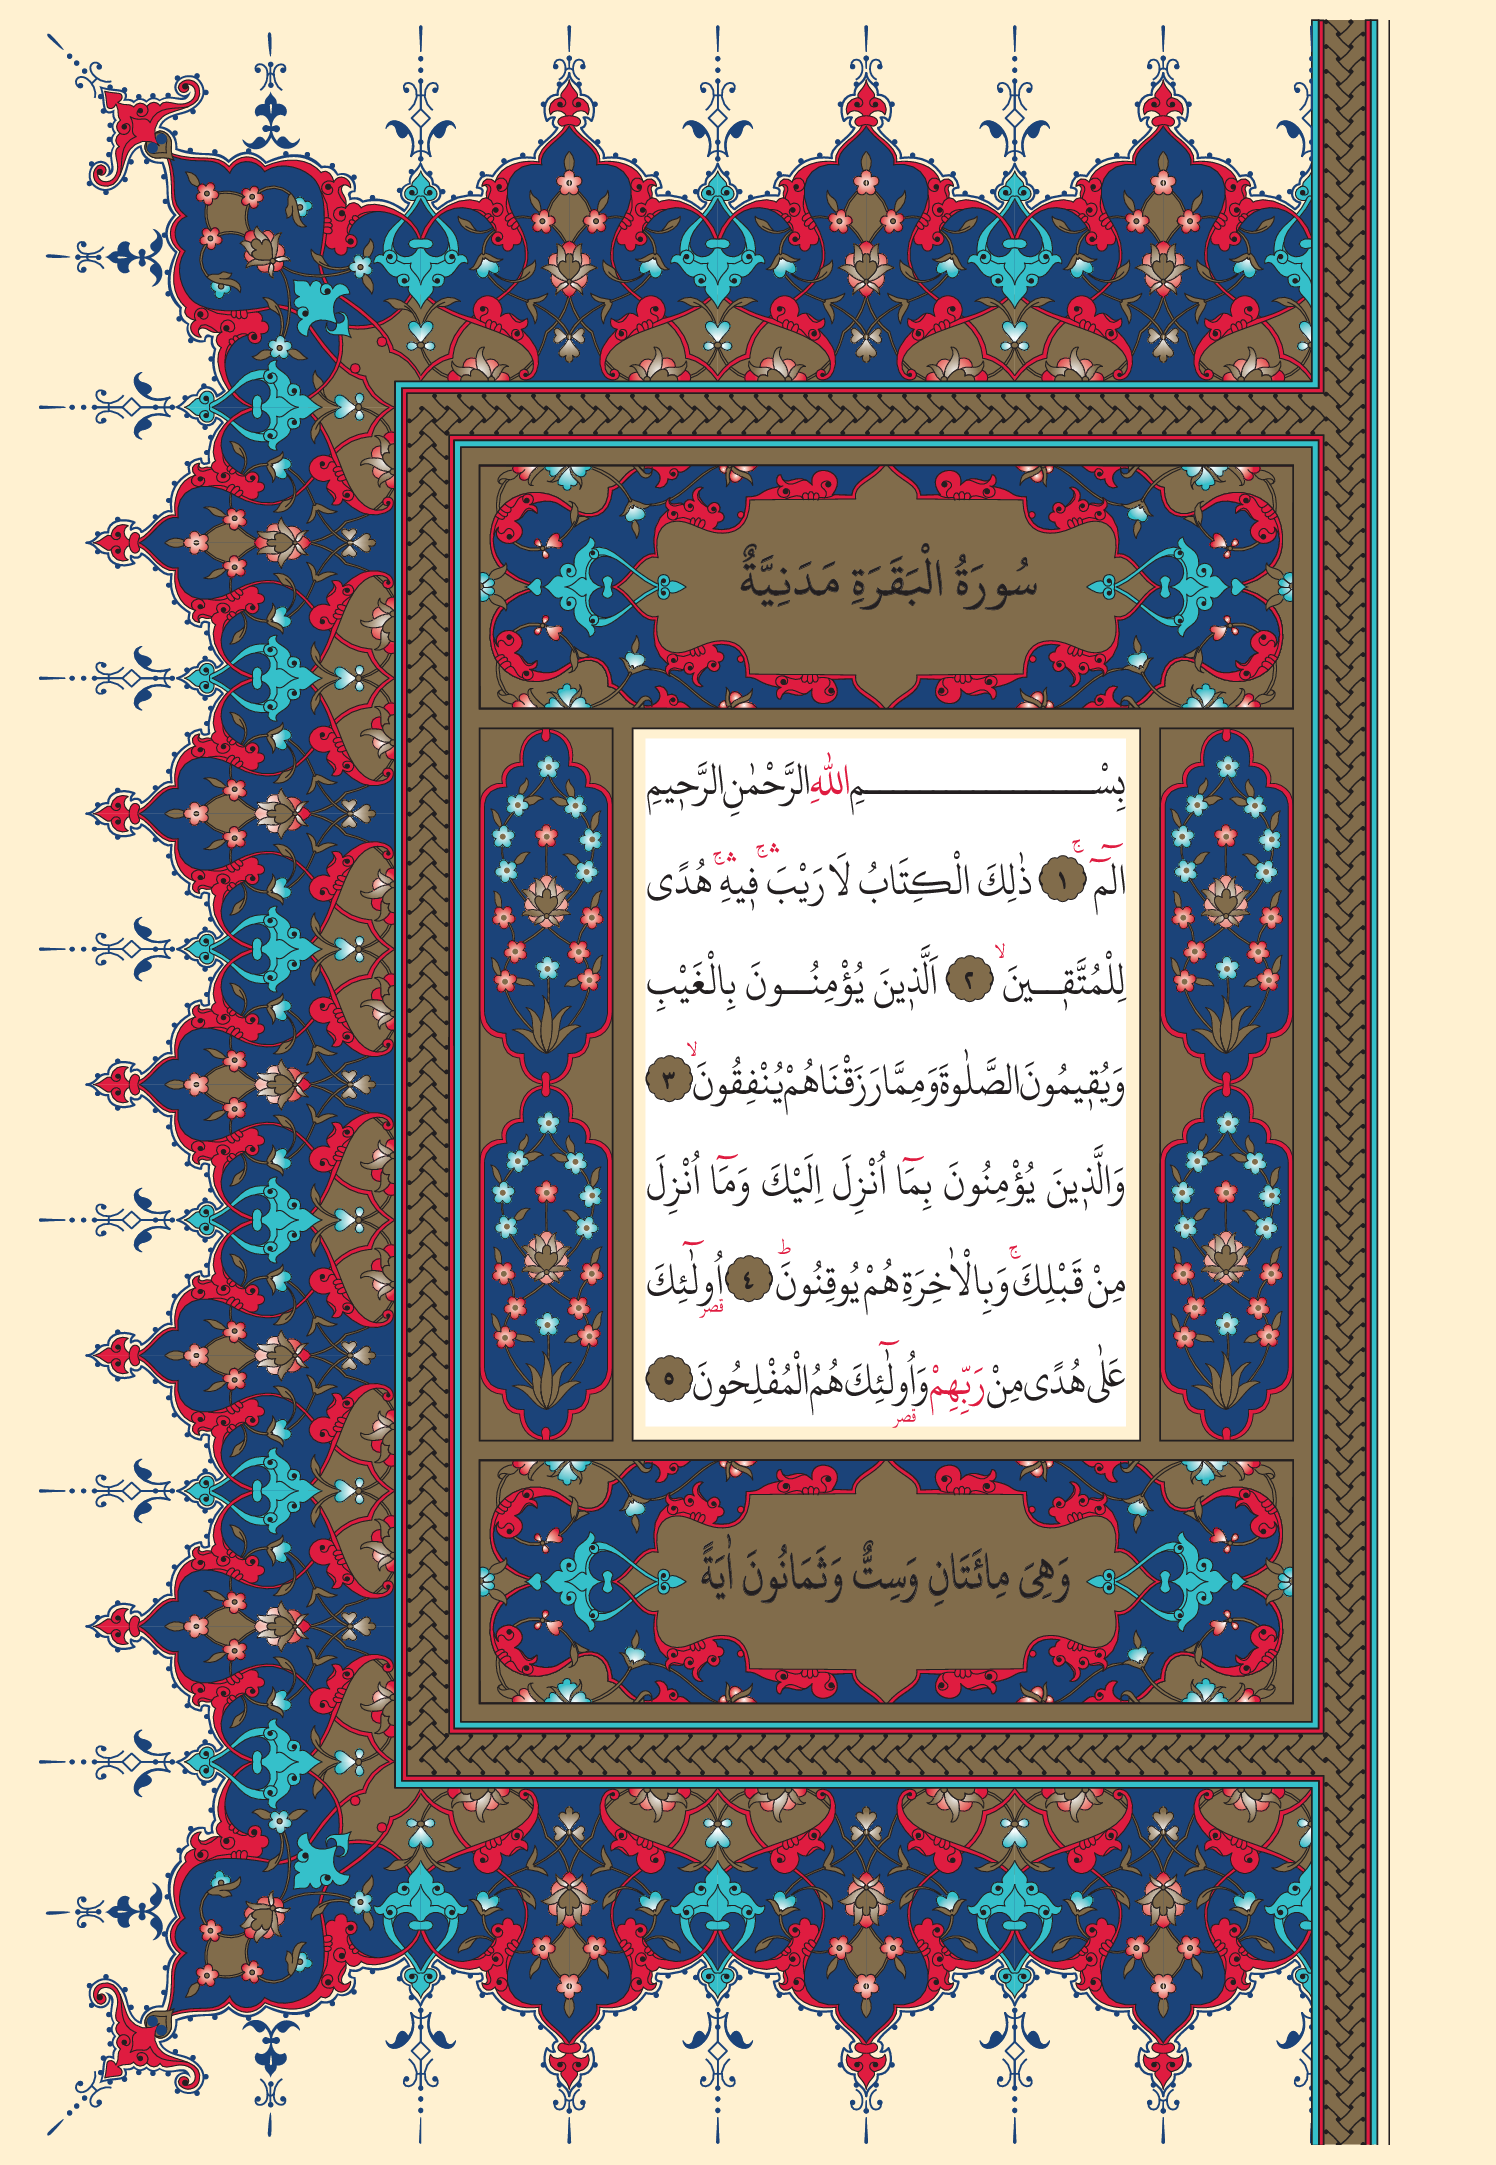 سُورَةُ الْبَقَرَةِ مَدَنِيَّةٌ
بِسْــــــــــــمِ اللّٰهِ الرَّحْمٰنِ الرَّحٖيمِ
الٓمٓ ۚ ﴿١﴾ ذٰلِكَ الْكِتَابُ لَا رَيْبَۚۛ فٖيهِۚۛ هُدًى
لِلْمُتَّقٖــينَۙ ﴿٢﴾ اَلَّذٖينَ يُؤْمِنُــونَ بِالْغَيْبِ
وَيُقٖيمُونَ الصَّلٰوةَ وَمِمَّا رَزَقْنَاهُمْ يُنْفِقُونَۙ ﴿٣﴾
وَالَّذٖينَ يُؤْمِنُونَ بِمَٓا اُنْزِلَ اِلَيْكَ وَمَٓا اُنْزِلَ
مِنْ قَبْلِكَۚ وَبِالْاٰخِرَةِ هُمْ يُوقِنُونَؕ ﴿٤﴾ اُولٰٓئِكَ
قصر
عَلٰى هُدًى مِنْ رَبِّهِمْ وَاُولٰٓئِكَ هُمُ الْمُفْلِحُونَ ﴿٥﴾
قصر
وَهِىَ مِائَتَانِ وَسِتٌّ وَثَمَانُونَ اٰيَةً